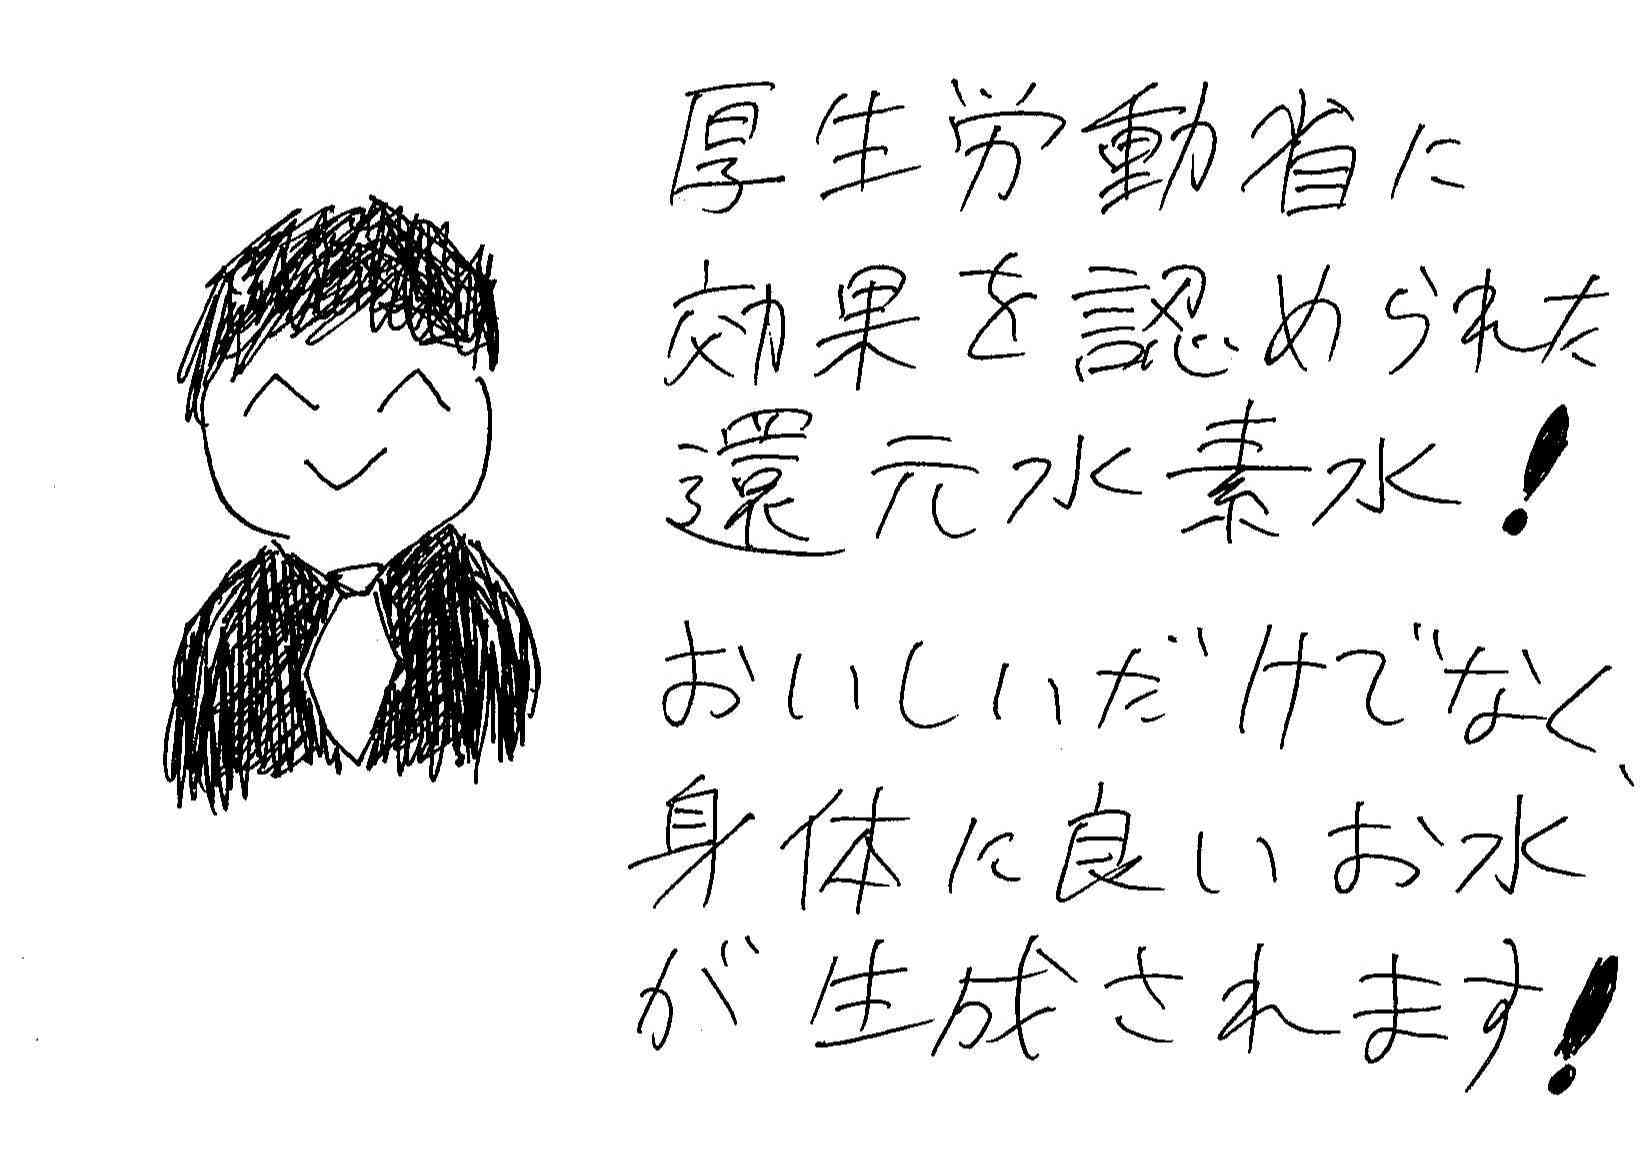 厚生労働省に
効果を認められた
還元水素水!
おいしいだけでなく、
身体に良いお水
が生成されます!